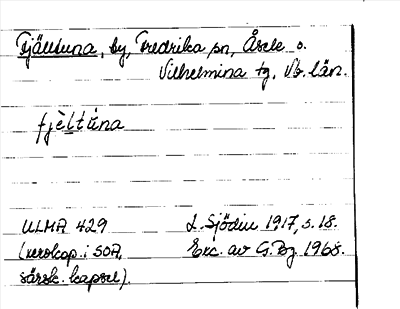 Fjälltuna, by, Fredrika sn, Åsele o.
Vilhelmina tg, Vb. län.
fjèltúna
ULMA 429
L. Sjödin 1917, s. 18.
(xerokop. i SOA,
Exc. av G. Bg 1968.
särsk. kapsel).